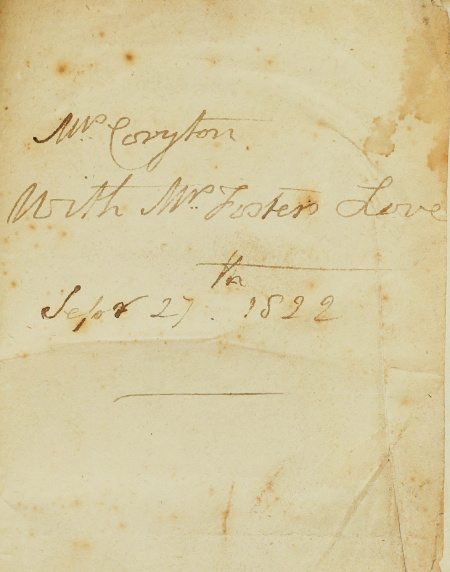 Mrs Coryton
With Mrs Fosters Love
Sepr 27th 1822